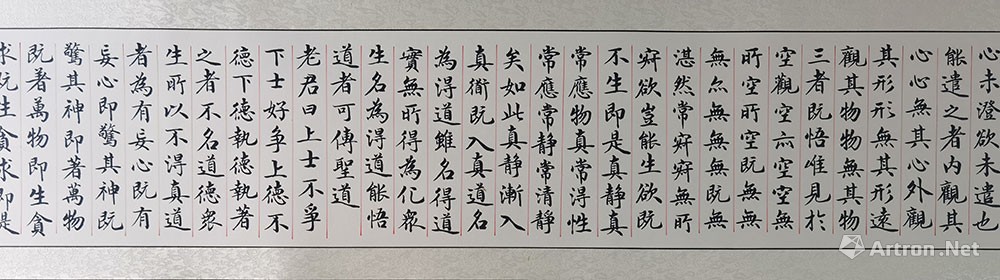 心未澄欲未遣也
能遣之者內觀其
心心無其心外觀
其形形無其形遠
觀其物物無其物
三者既悟唯見於
空觀空亦空空無
所空所空既無無
無亦無無無既無
湛然常寂寂無所
寂欲豈能生欲既
不生即是真靜真
常應物真常得性
常應常靜常清靜
矣如此真靜漸入
真衜既入真道名
為得道雖名得道
實無所得為化衆
生名為得道能悟
道者可傳聖道
老君曰上士不爭
下士好爭上德不
德下德執德執著
之者不名道德衆
生所以不得真道
者為有妄心既有
妄心即驚其神既
驚其神即著萬物
既著萬物即生貪
求既生貪求即是
Artron.Net